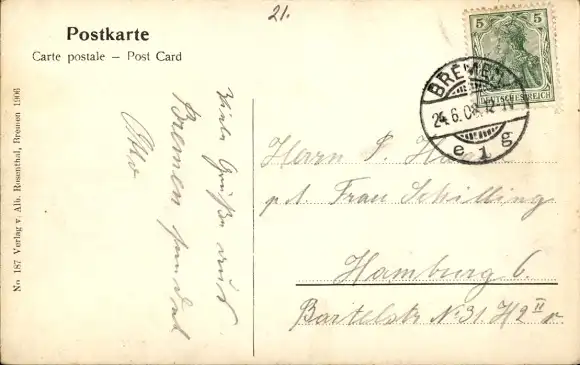 21.
Postkarte
Carte postale – Post Card
5 5
DEUTSCHES REICH
BREMEN
24.6.08.
e 1 g
No 187 Verlag v. Alb. Rosenthal, Bremen 1906
Viele Grüße aus
Bremen sendet
Otto
Herrn P.
p.A. Frau Schilling
Hamburg 6.
Bartelstr No 31 H2 II r.